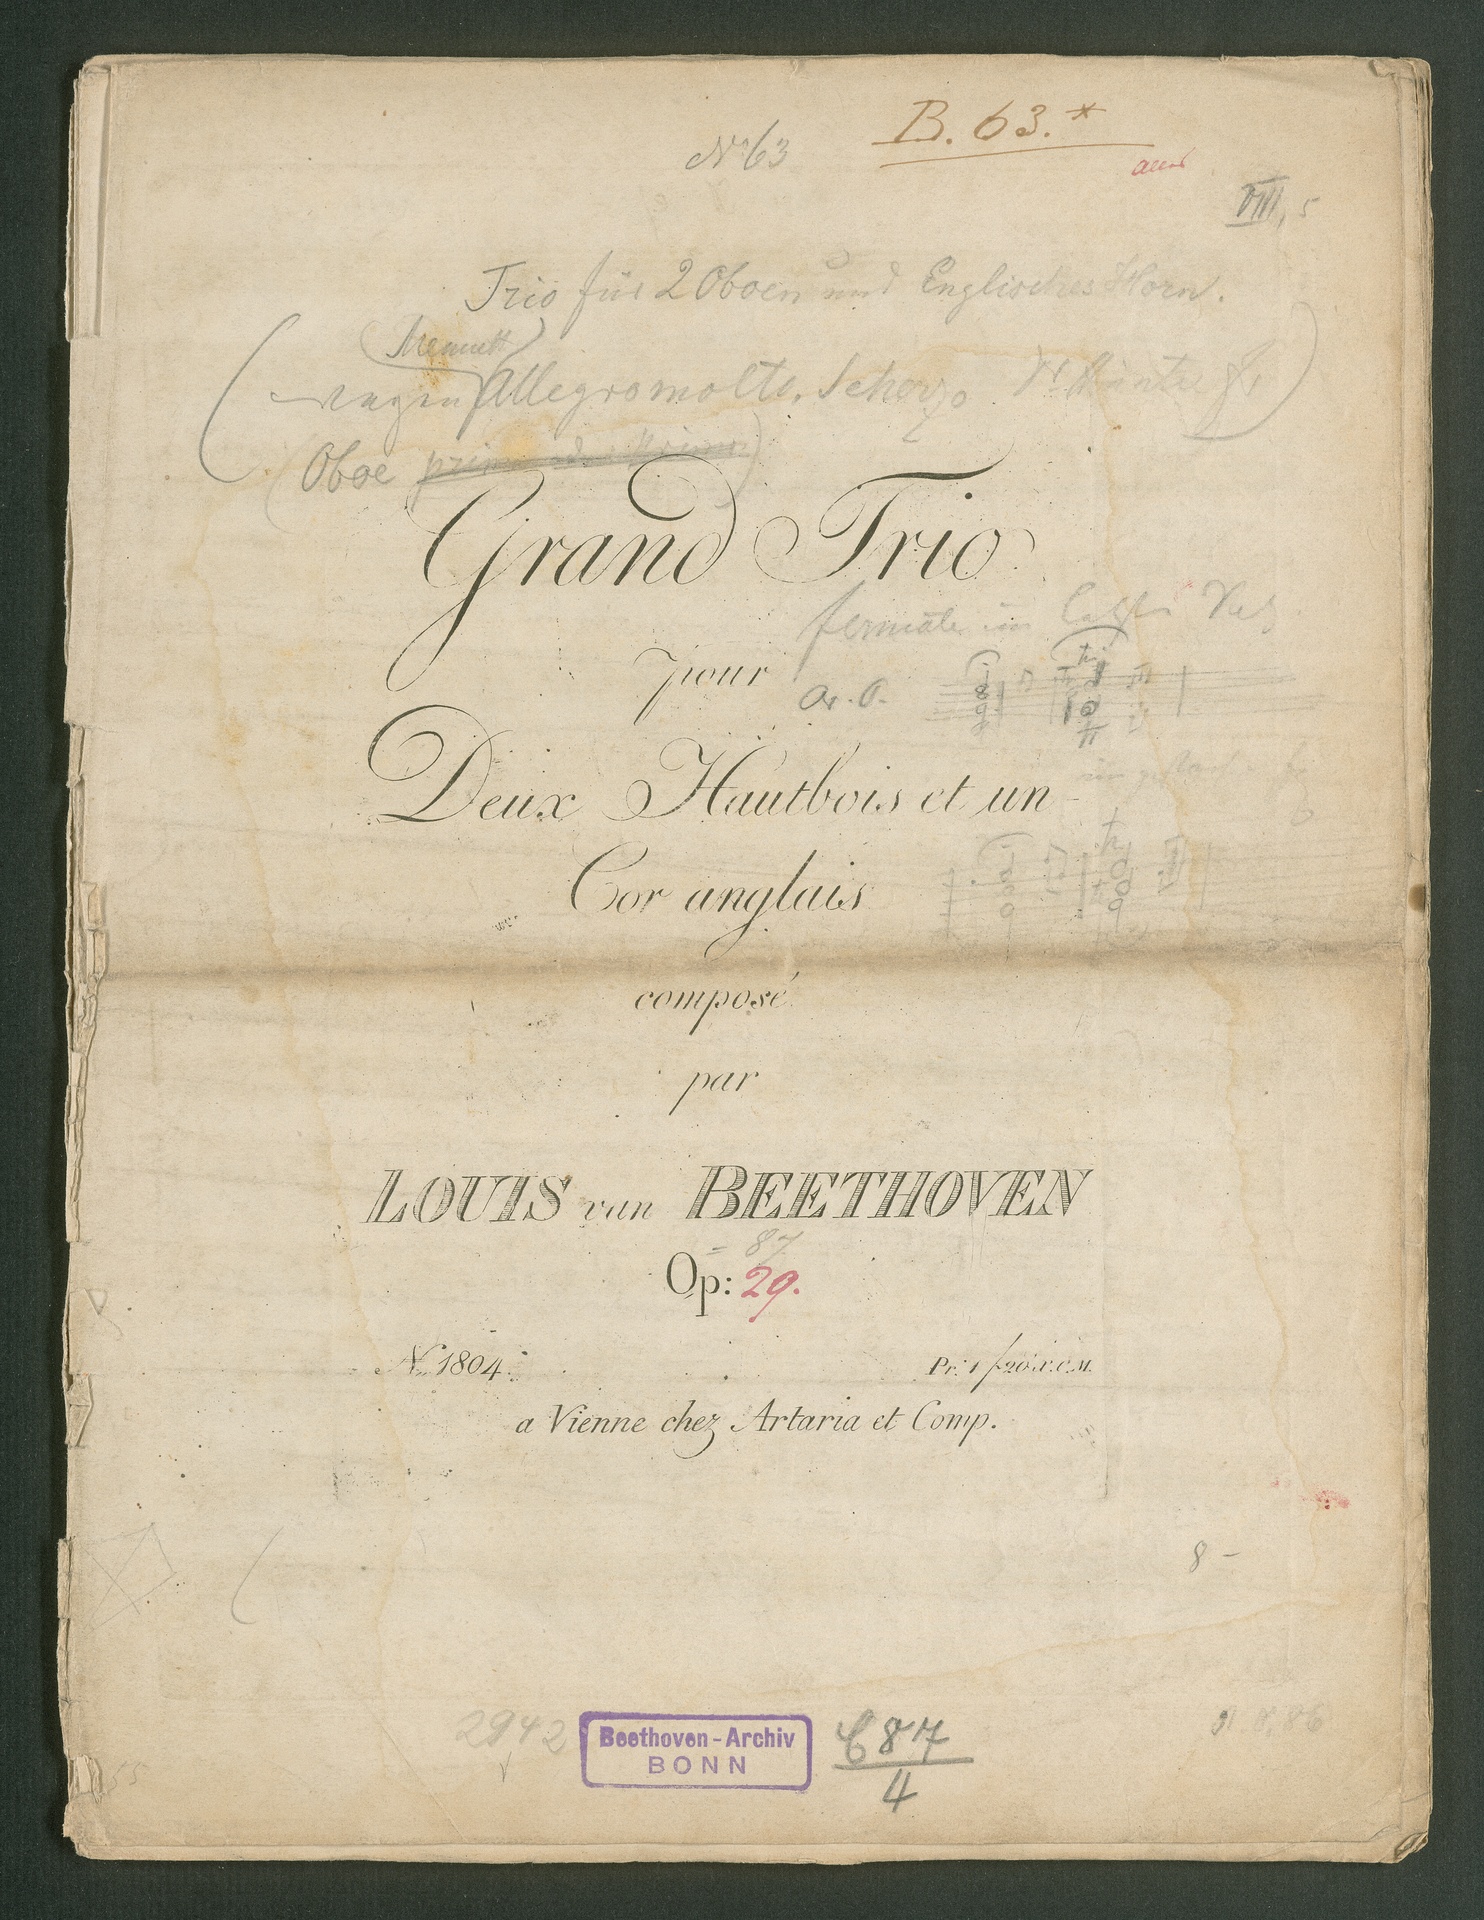 B. 63.*
No 63
VIII, 5
Trio für 2 Oboen und Englisches Horn.
Menuett
wegen Allegro molto. Scherzo
Oboe
Grand Trio
fermate im
pour
Deux Hautbois et un
Cor anglais
composé
par
LOUIS van BEETHOVEN
= 87
Op: 29.
No. 1804.
Pr: 1 f 20 x. C.M.
a Vienne chez Artaria et Comp.
8 -
2942
Beethoven-Archiv
BONN
C 87
4
55